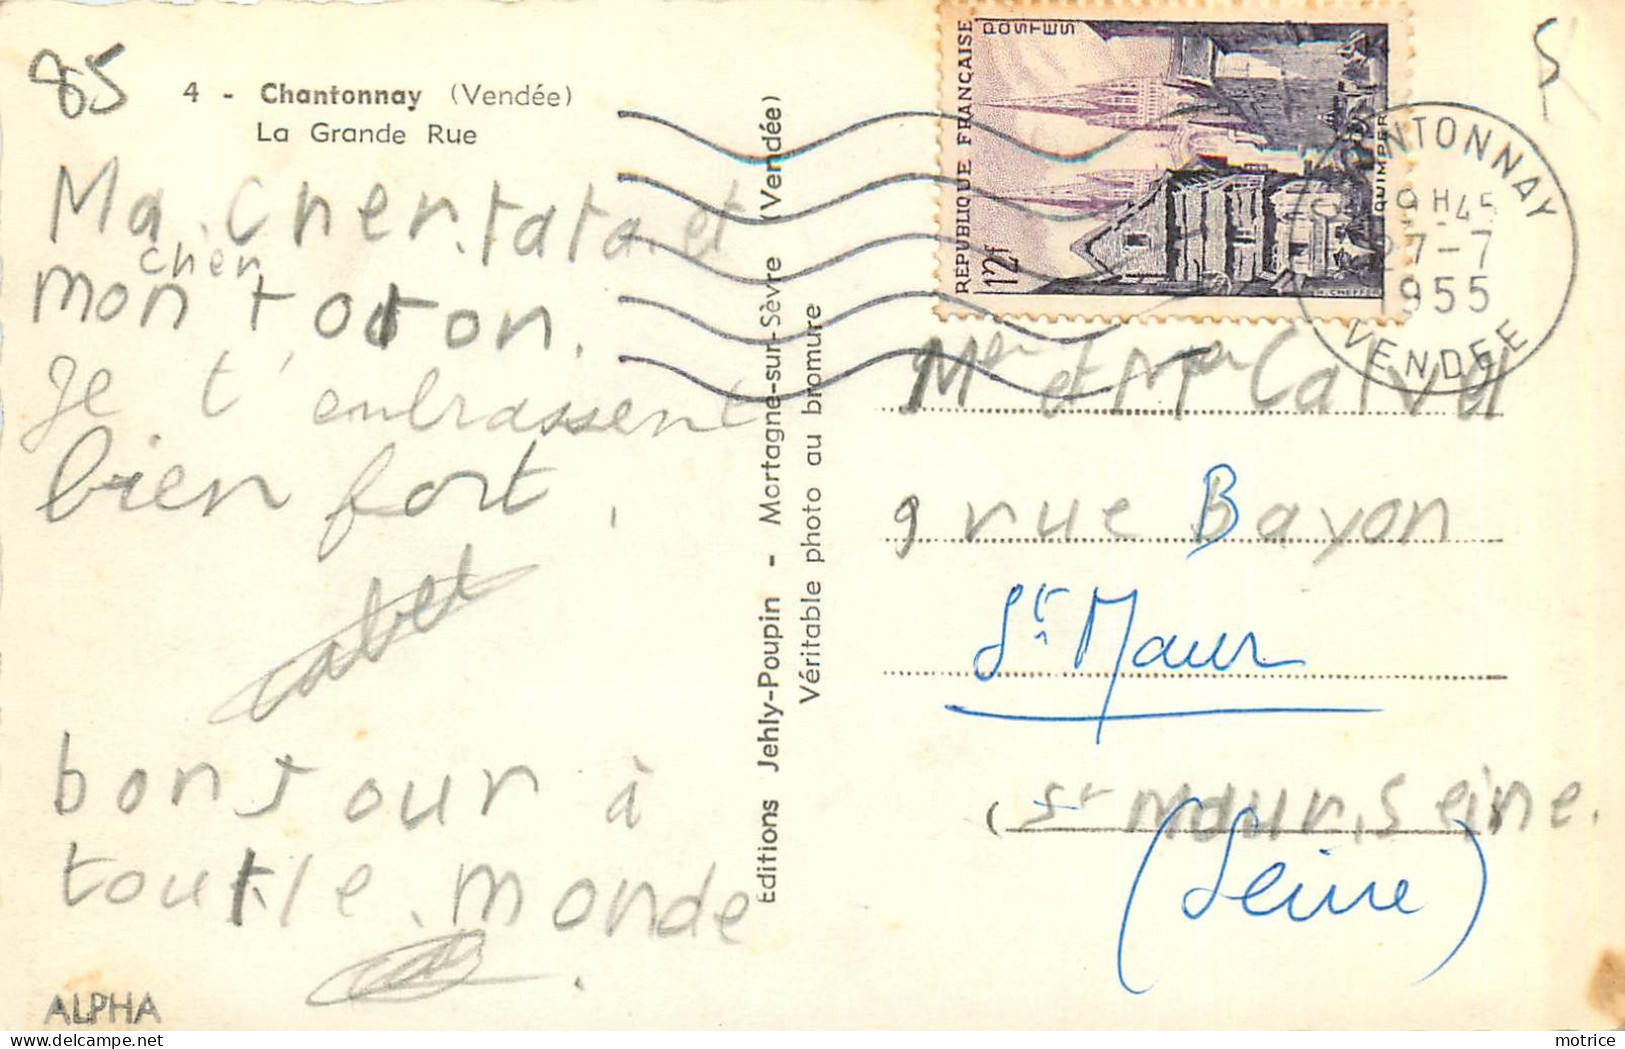 85
4 - Chantonnay (Vendée)
La Grande Rue
Ma cher tata et
cher
mon toton.
Je t'embrassent
bien fort.
bonjour à
tout le monde
ALPHA
Editions Jehly-Poupin - Mortagne-sur-Sèvre (Vendée)
Véritable photo au bromure
REPUBLIQUE FRANÇAISE
POSTES
12f
QUIMPER
CHANTONNAY
19H45
27-7
1955
VENDEE
Mer et Mer Calvu
9 rue Bayon
St Maur
(St maur. Seine.
(Seine)
motrice